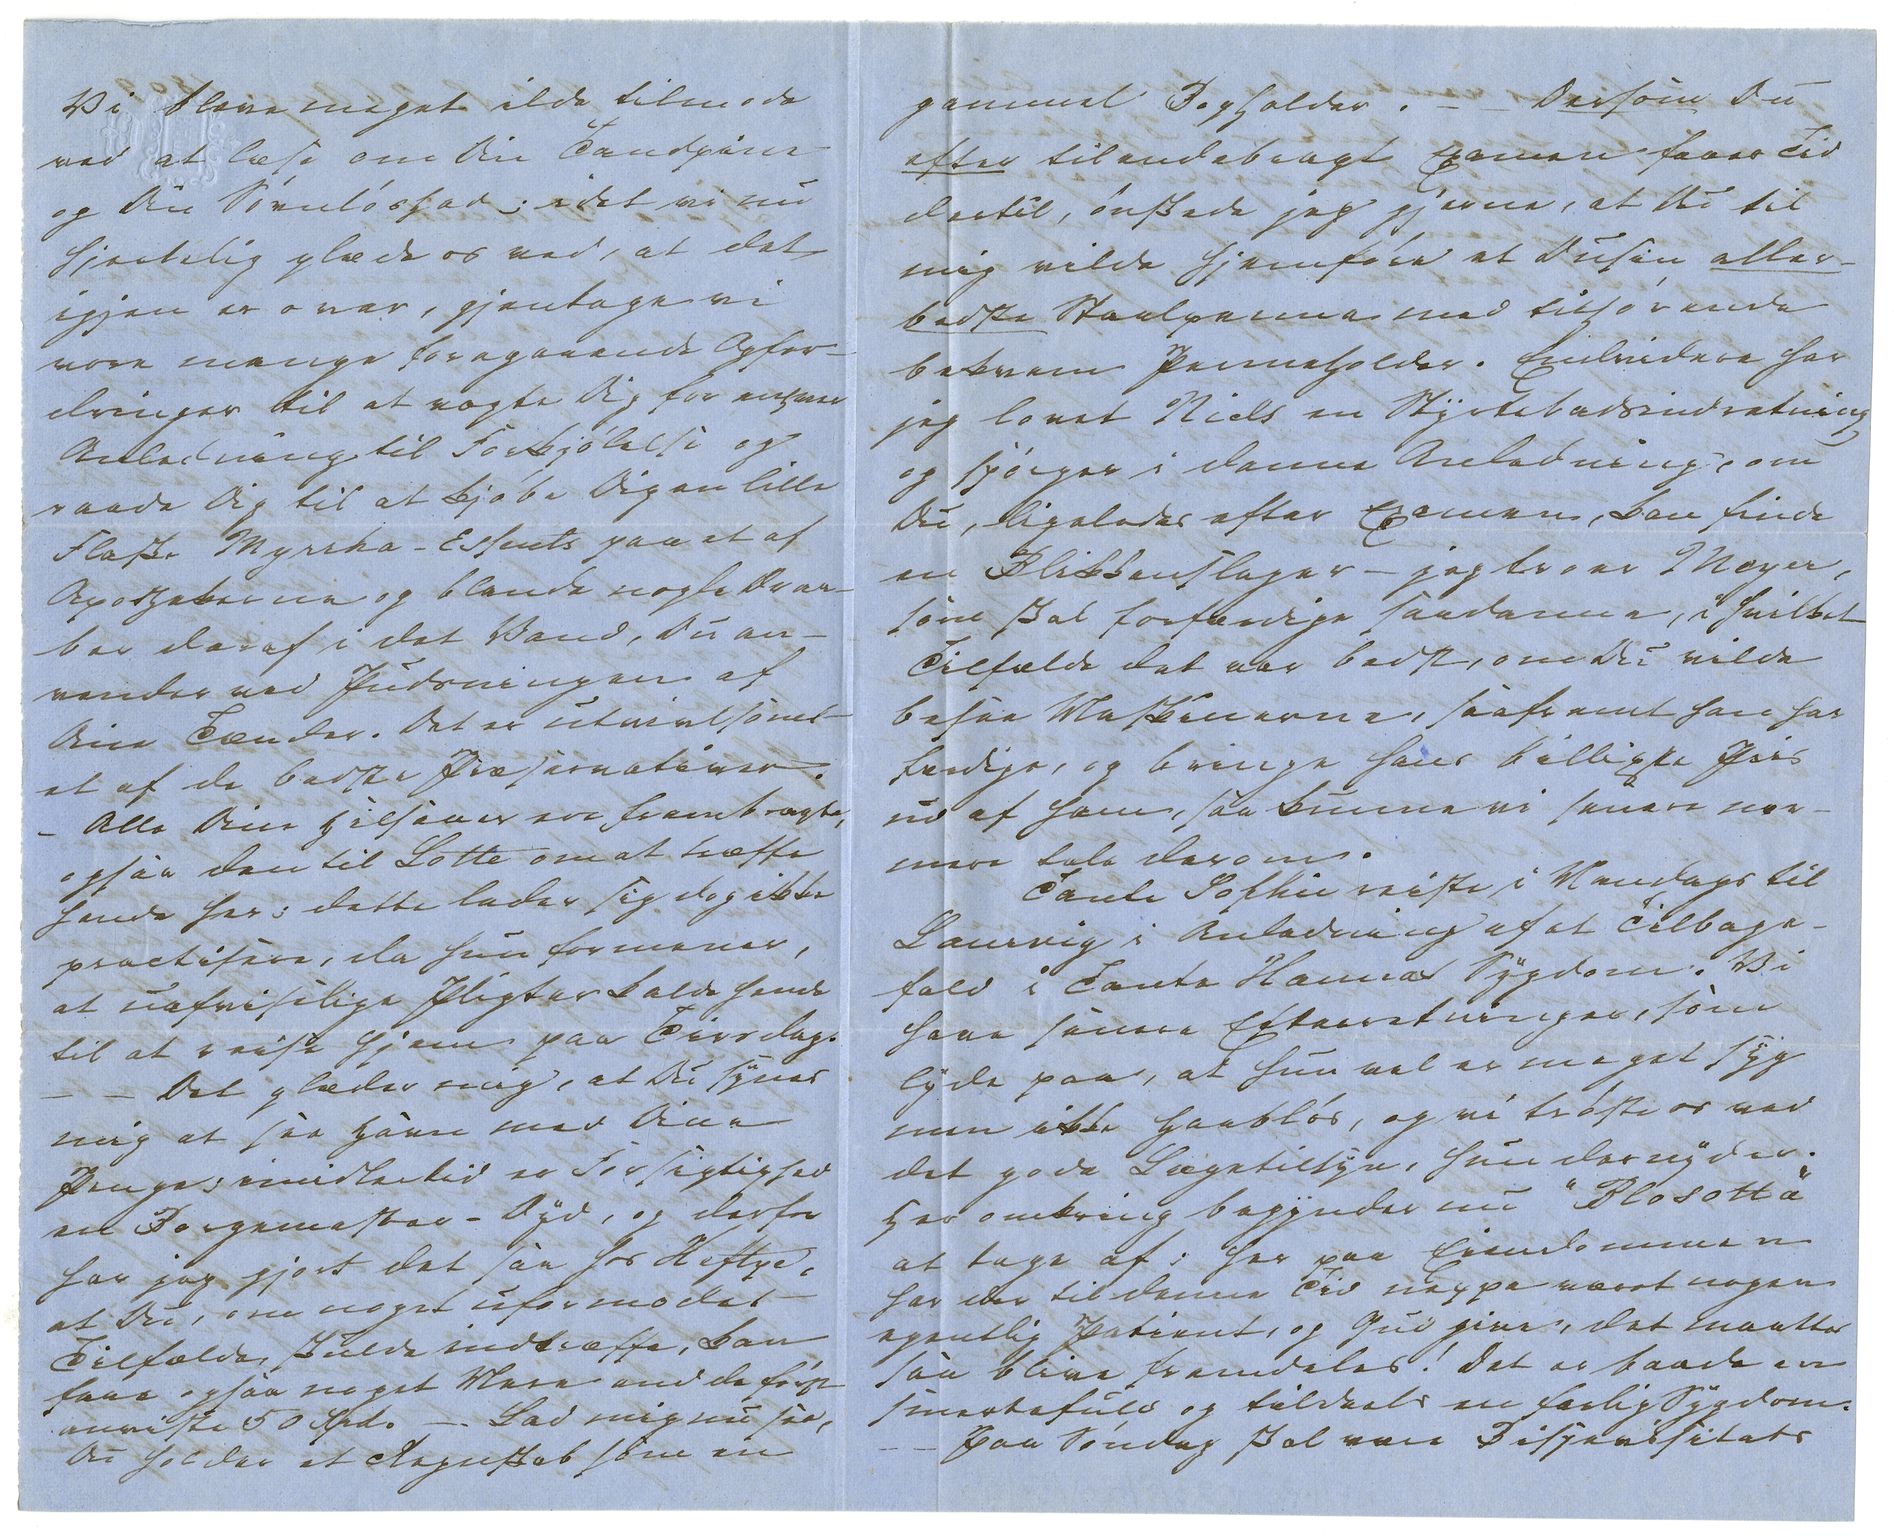 Vi bleve meget ilde tilmode
ved at læse om Din Tandpine
og Din Søvnløshed; idet vi nu
hjertelig glæde os ved, at det
igjen er over, gjentage vi
vore mange foregaaende Opfor-
dringer til at vogte Dig for enhver
Anledning til Forkjølelse og
raade Dig til at kjøbe Dig en lille
Flaske Myrrha-Essents paa et af
Apothekerne og blande nogle Draa-
ber deraf i det Vand, Du an-
vender ved Pudsningen af
Dine Tænder. Det er utvivlsomt
et af de bedste Præservativer.
- Alle Dine Hilsener ere frembragte,
ogsaa den til Lotte om at træffe
hende her; dette lader sig dog ikke
practisere, da hun formener,
at uafviselige Pligter kalde hende
til at reise hjem paa Tirsdag.
- - Det glæder mig, at Du synes
mig at saa jævn med Dine
Penge; imidlertid er Forsigtighed
en Borgemester-Dyd, og derfor
har jeg gjort det saa hos Heftye,
at Du, om noget uformodet
Tilfælde skulde indtræffe, kan
faae ogsaa noget Mere end de først
anviste 50 Spd. - Lad mig nu see,
Du holder et Regnskab som en
gammel Bogholder. - - Dersom Du
efter tilendebragt Examen faaer Tid
dertil, ønskede jeg gjerne, at Du til
mig vilde hjemføre et Dusin aller-
bedste Staalpenne med tilhørende
bekvem Penneholder. Endvidere har
jeg lovet Niels en Styrtebadsindretning
og spørger i denne Anledning, om
Du, ligeledes efter Examen, kan finde
en Blikkenslager - jeg troer Meyer,
som skal forfærdige saadanne, i hvilket
Tilfælde det var bedst, om Du vilde
besee Maskinerne, saafremt han har
færdige, og bringe hans billigste Priis
ud af ham, saa kunne vi senere nær-
mere tale derom.
Tante Sophie reiste i Mandags til
Laurvig i Anledning af et Tilbage-
fald i Tante Hannas Sygdom. Vi
have senere Efterretninger, som
lyde paa, at hun vel er meget syg
men ikke haabløs, og vi trøste os ved
det gode Lægetilsyn, hun der nyder.
Her omkring begynder nu "Blosotta"
at tage af; her paa Eiendommen
har der til denne Tid neppe været nogen
egentlig Patient, og Gud give, det maatte
saa blive fremdeles! Det er baade en
smertefuld og tildeels en farlig Sygdom.
- - Paa Søndag skal vore Bispevisitats